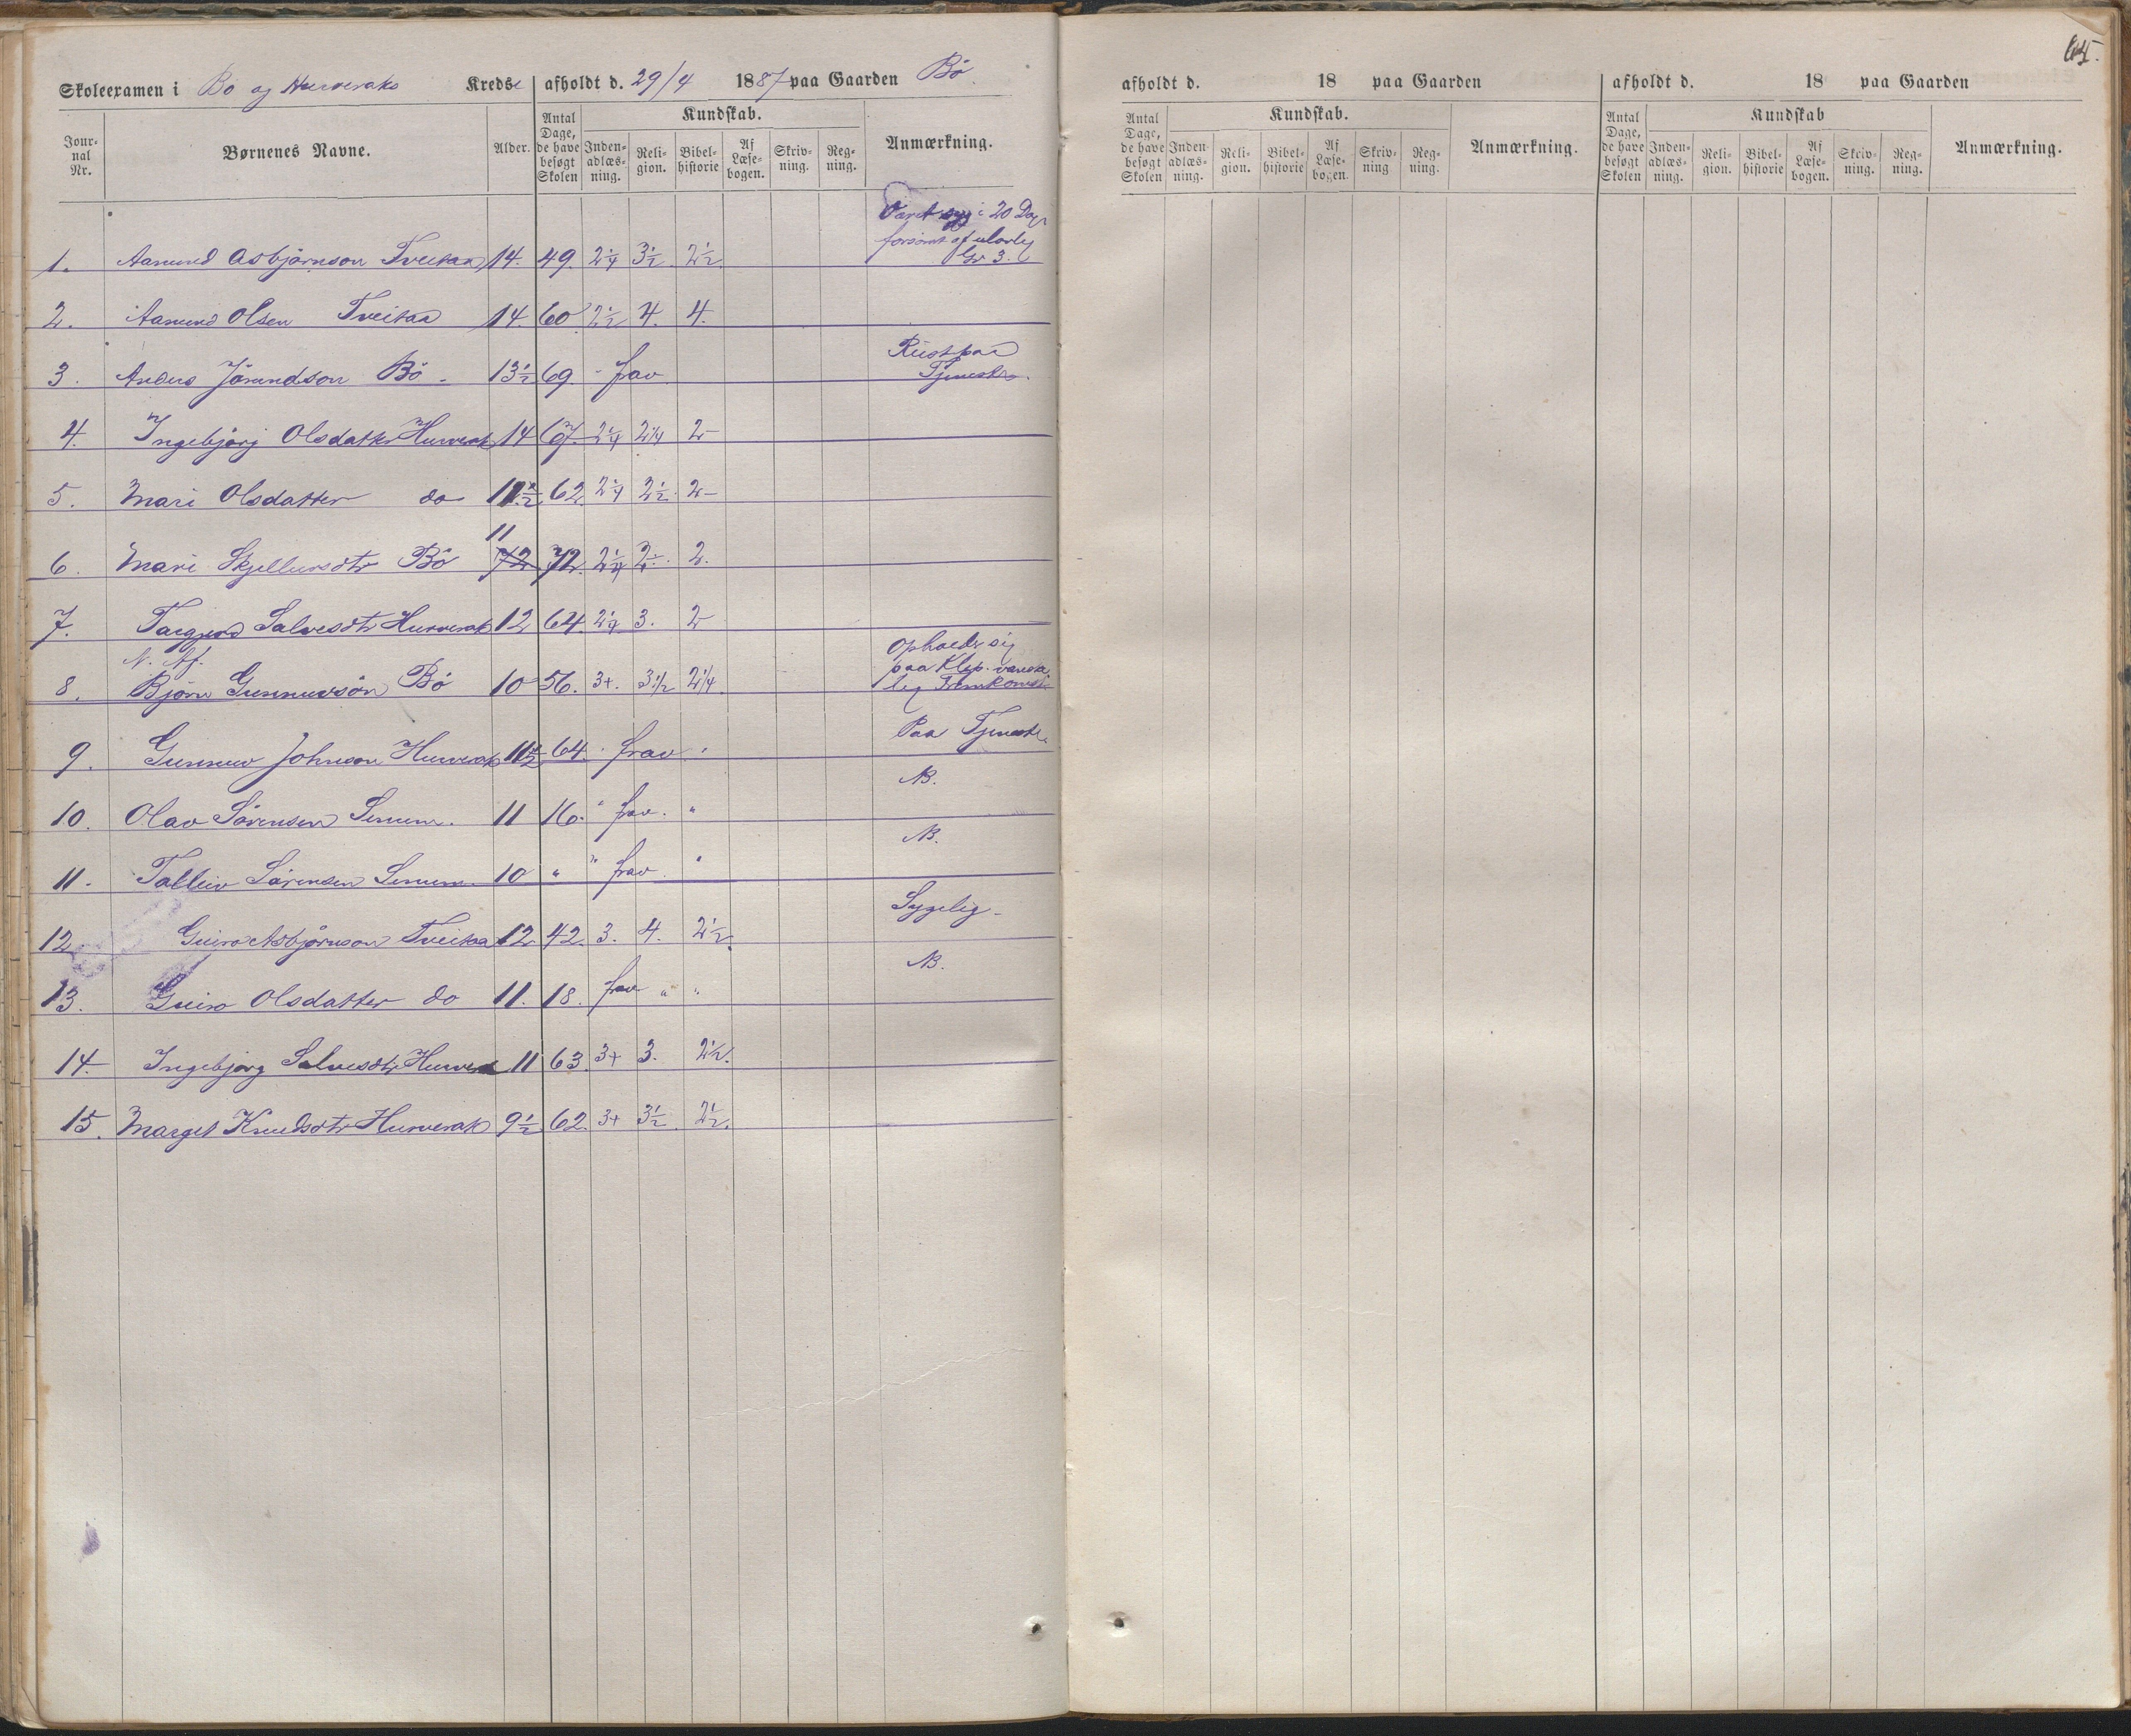 Skoleexamen i Bø og Hurveraks Kredse afholdt d. 29/4 1887 paa Gaarden Bö
Jour-nal Nr. Børnenes Navne. Alder. Antal Dage, de have besøgt Skolen Kundskab. Inden-adlæs-ning. Reli-gion. Bibel-historie Af Læse-bogen. Skriv-ning. Reg-ning. Anmærkning.
1. Aamund Asbjörnson Tveitaa 14. 49. 2 1/4 3 1/2 2 1/2 Været syg i 20 Dage
forsömt af ulovlig
Gr 3.
2. Aamund Olsen Tveitaa 14. 60 2 1/2 4. 4.
3. Anders Jörundson Bö 13 1/2 69 - frav Reist paa
Tjeneste.
4. Ingebjörg Olsdatter Hurverak 14 67. 2 1/4 2 1/4 2-
5. Mari Olsdatter do 11 1/2 62. 2 1/4 2 1/2 2-
11
6. Mari Skjellursdtr Bö 72 72. 2 1/4 2. 2.
7. Targjerd Salvesdtr Hurverak 12 64. 2 1/4 3. 2
N. Af.
8. Björn Gunnuvsön Bö 10 56. 3+. 3 1/2 2 1/4 Opholder sig
paa Klep. vanske
lig Fremkomst
9. Gunnuv Johnson Hurverak 11 1/2 64. " frav. " Paa Tjeneste.
10. Olav Sörensen 11 16. " frav. " NB.
11. Talleiv Sörensen 10 " " frav. " NB.
12. Guiro Asbjörnson Tveitaa 12 42. 3. 4. 2 1/2. Sygelig-
13. Guiro Olsdatter do 11. 18. frav " " NB.
14. Ingebjörg Salvesdtr Hurverak 11 63. 3+ 3. 2 1/2.
15. Marget Knudsdtr Hurverak 9 1/2 62. 3+ 3 1/2 2 1/2.
65.
afholdt d. 18 paa Gaarden
Antal Dage, de have besøgt Skolen Kundskab. Inden-adlæs-ning. Reli-gion. Bibel-historie Af Læse-bogen. Skriv-ning Reg-ning. Anmærkning.
afholdt d. 18 paa Gaarden
Antal Dage, de have besøgt Skolen Kundskab Inden-adlæs-ning. Reli-gion. Bibel-historie Af Læse-bogen. Skriv-ning. Reg-ning. Anmærkning.